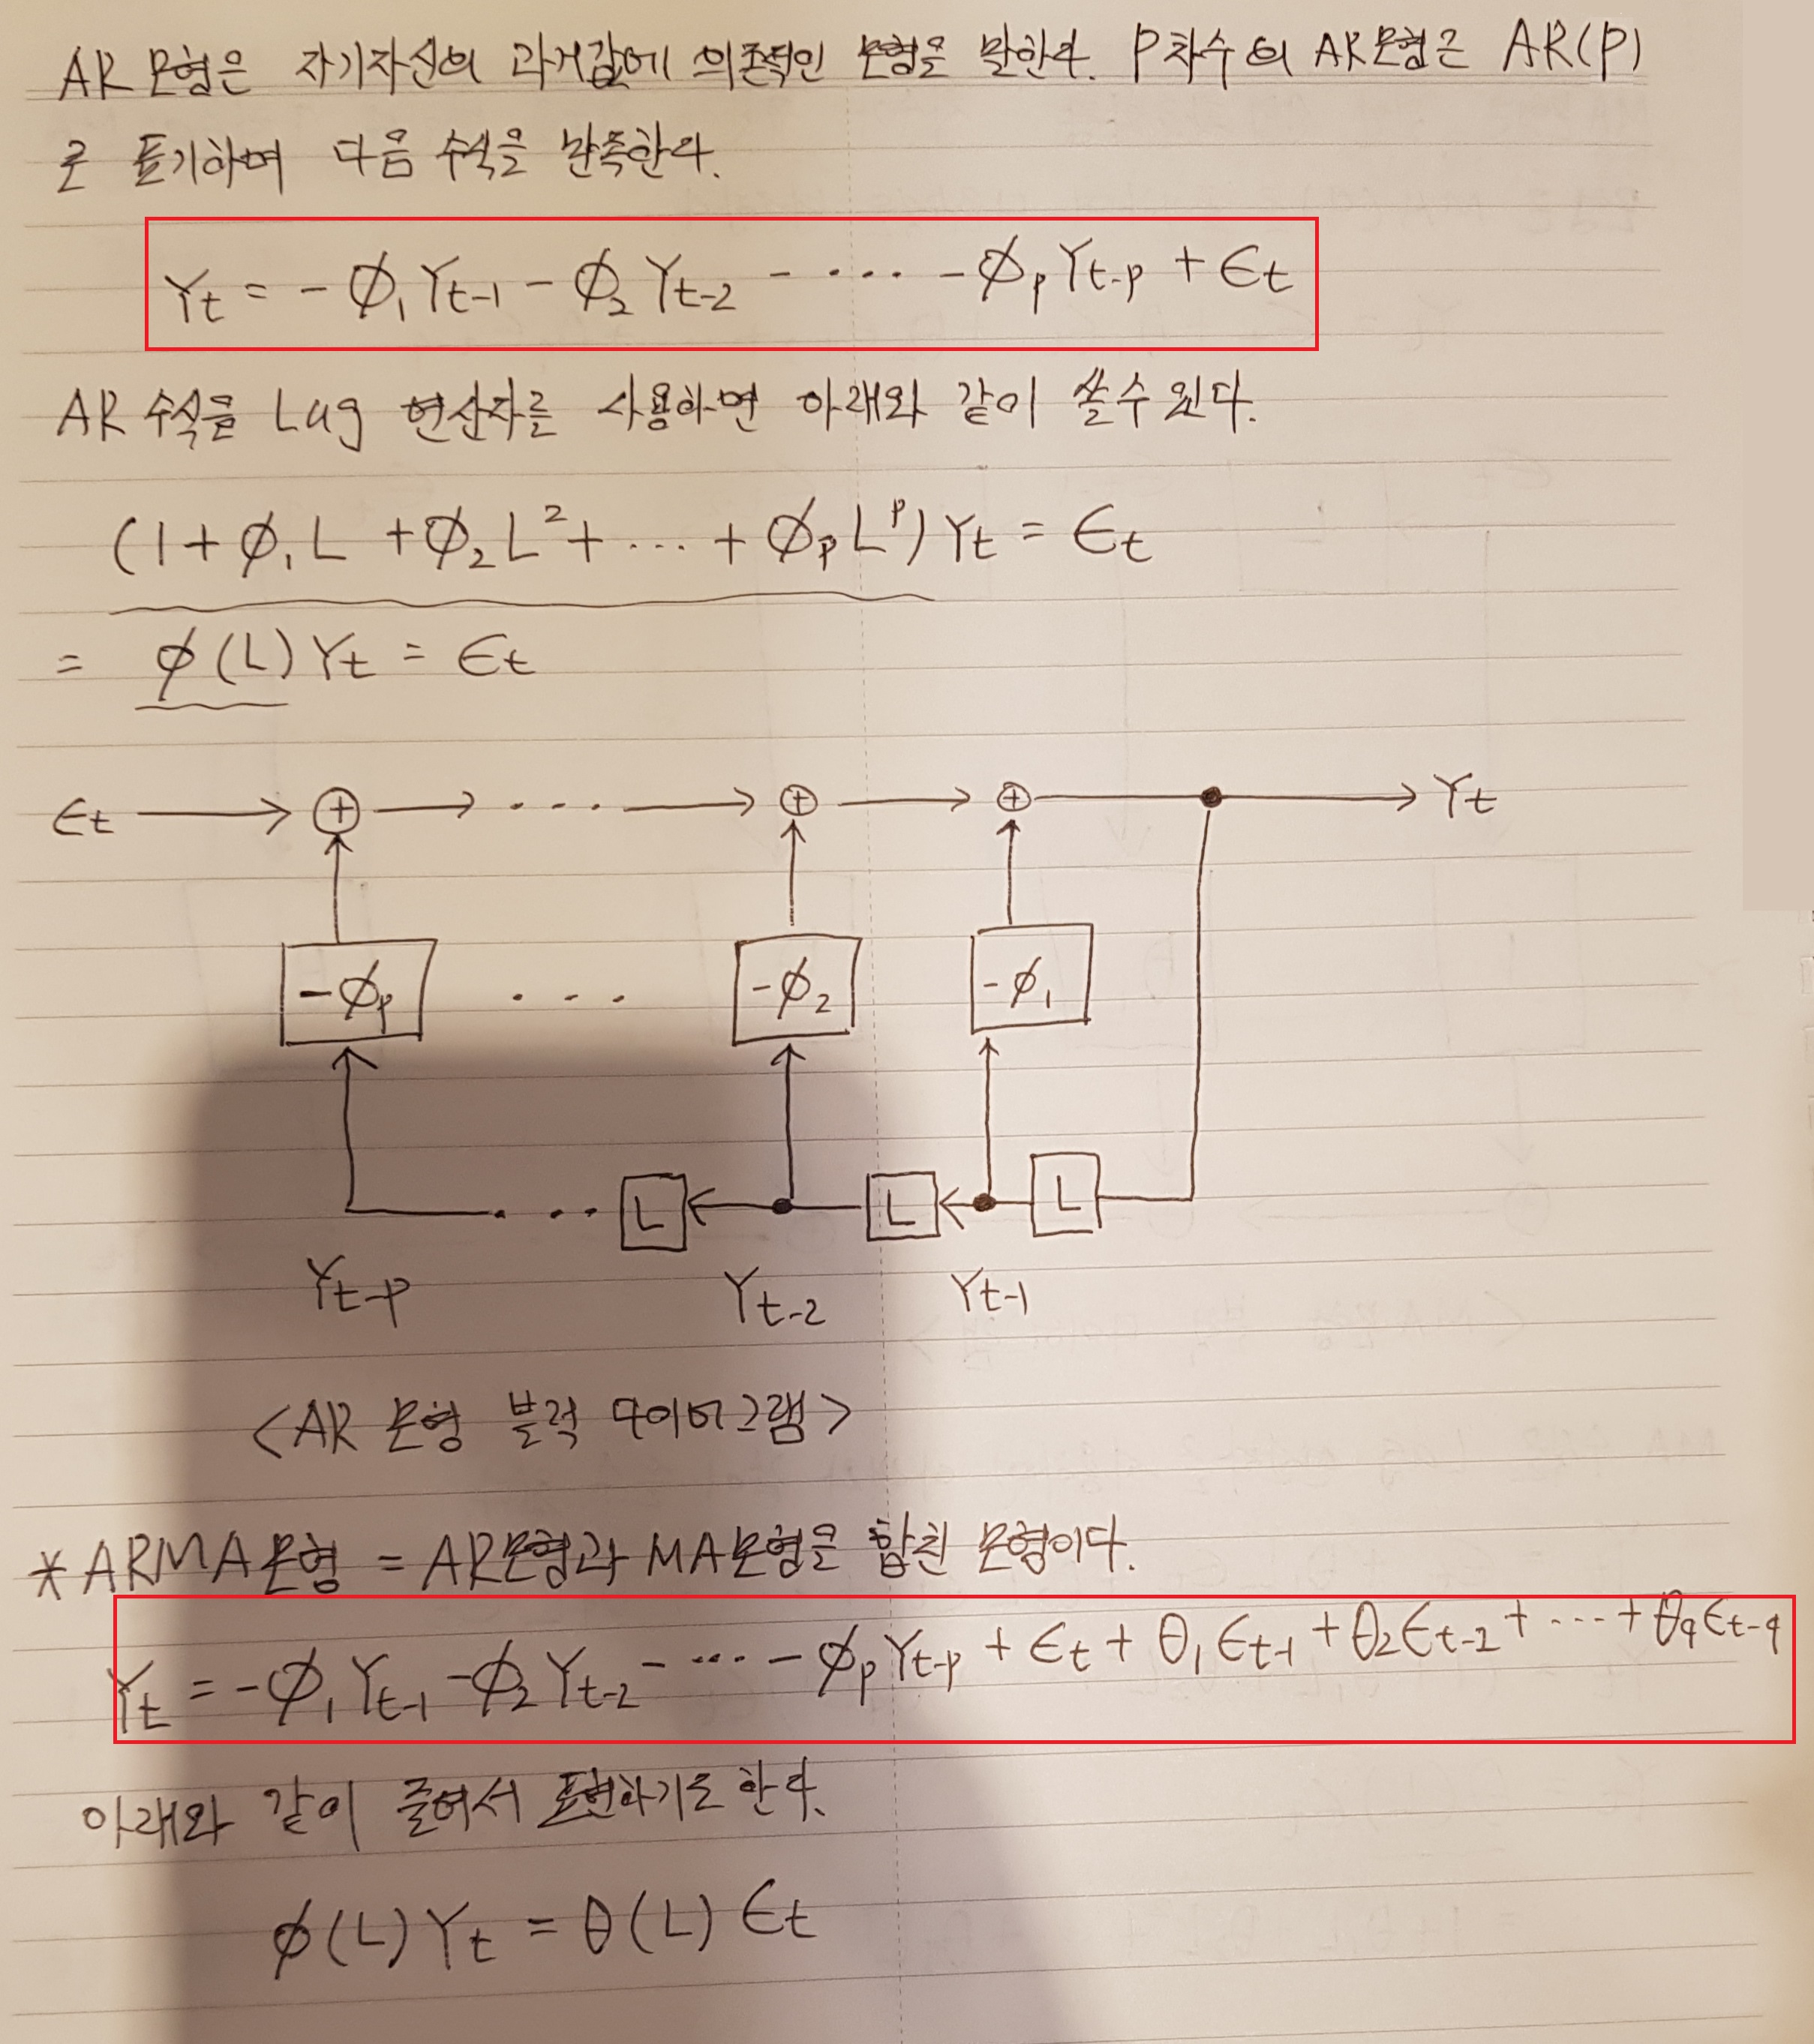 AR 모형은 자기자신의 과거값에 의존적인 모형을 말한다. P차수의 AR모형은 AR(P)
로 표기하며 다음 수식을 만족한다.
Yt = - ϕ₁Yt-1 - ϕ₂Yt-2 - ···· - ϕpYt-p + ϵt
AR 수식을 Lag 연산자를 사용하면 아래와 같이 쓸수 있다.
(1 + ϕ₁L + ϕ₂L² + ... + ϕpLᵖ) Yt = ϵt
= ϕ(L) Yt = ϵt
ϵt + ··· + + Yt
-ϕp ··· -ϕ₂ -ϕ₁
L L L
Yt-p Yt-2 Yt-1
<AR 모형 블럭 다이어그램>
*ARMA모형 = AR모형과 MA모형을 합친 모형이다.
Yt = -ϕ₁Yt-1 - ϕ₂Yt-2 - ···· - ϕpYt-p + ϵt + θ₁ϵt-1 + θ₂ϵt-2 + ···· + θqϵt-q
아래와 같이 줄여서 표현하기도 한다.
ϕ(L) Yt = θ(L) ϵt